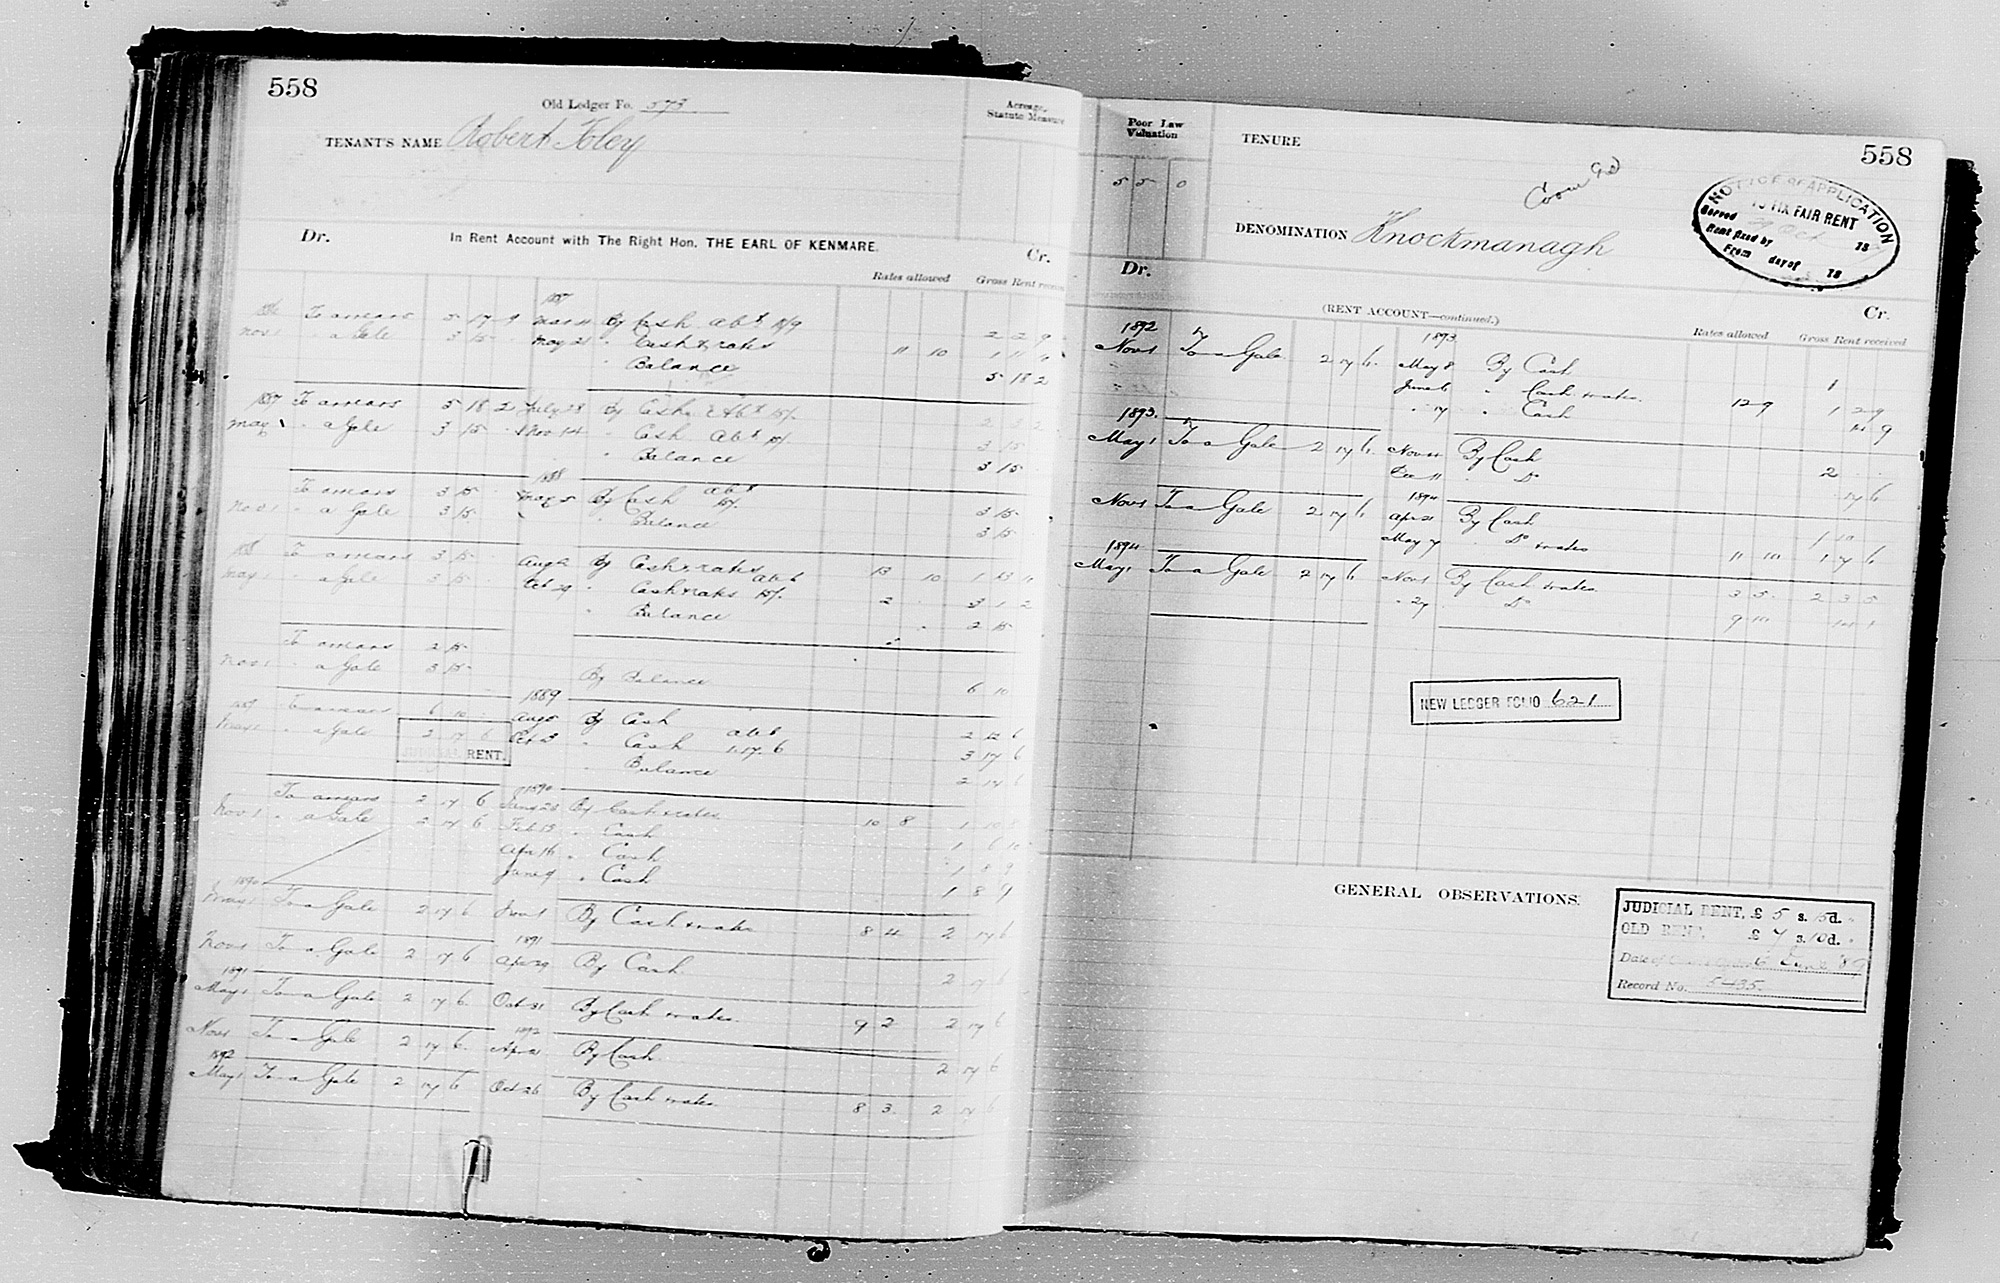 558
Old Ledger Fo. 573
Acreage, Statute Measure
TENANT'S NAME Robert Foley
Dr. In Rent Account with The Right Hon. THE EARL OF KENMARE. Cr.
Rates allowed Gross Rent received
1887
To arrears 5 17 9 Mar 11 By Cash abt 15/9 2 2 9
Nov 1 " a Gale 3 15 May 21 " Cash & rates 11 10
" Balance 5 18 2
1887 To arrears 5 18 2 July 18 By Cash & Abt 15/.
May 1 " a Gale 3 15 Nov 14 " Cash Abt 15/. 3 15
" Balance 3 15
1888
To arrears 3 15 May 5 By Cash abt 15/. 3 15
Nov 1 " a Gale 3 15 " Balance 3 15
To arrears 3 15 Aug 2 By Cash & rates 13 10
May 1 " a Gale 3 15 Oct 29 " Cash & rates abt 15/. 2 3 1 2
" Balance 2 15
To arrears 2 15
Nov 1 " a Gale 3 15 By Balance 6 10
1889
To arrears 6 10 Aug 5 By Cash 2 12 6
May 1 " a Gale 2 17 6 Oct 3 " Cash abt 1.17.6 3 17 6
JUDICIAL RENT. " Balance 2 17 6
1890
To arrears 2 17 6 Jany 28 By Cash & rates 10 8 1 10 8
Nov 1 " a Gale 2 17 6 Feb 15 " Cash 1 6 10
Apr 16 " Cash 1 8 9
June 9 " Cash 1 8 9
1890
May 1 To a Gale 2 17 6 Nov 1 By Cash & rates 8 4 2 17 6
1891
Nov 1 To a Gale 2 17 6 Apr 29 By Cash 2 17 6
1891
May 1 To a Gale 2 17 6 Oct 31 By Cash & rates 9 2 2 17 6
1892
Nov 1 To a Gale 2 17 6 Apr 21 By Cash 2 17 6
1892
May 1 To a Gale 2 17 6 Oct 26 By Cash & rates 8 3 2 17 6
Poor Law Valuation
5 5 0
TENURE
558
NOTICE OF APPLICATION
TO FIX FAIR RENT
Served Oct 18
Rent fixed by
From day of 18
DENOMINATION Knockmanagh
Dr. (RENT ACCOUNT—continued.) Cr.
Rates allowed Gross Rent received
1892 1893
Nov 1 To a Gale 2 17 6 May 8 By Cash 1
June 6 " Cash & rates 12 9 1 2 9
" 17 " Cash 14 9
1893
May 1 To a Gale 2 17 6 Nov 11 By Cash 2
Dec 11 " Do 17 6
1894
Nov 1 To a Gale 2 17 6 Apr 21 By Cash 1 10
May 7 " Do & rates 11 10 1 7 6
1894
May 1 To a Gale 2 17 6 Nov 1 By Cash & rates 3 5 2 3 5
" 27 Do 9 10 14 1
NEW LEDGER FOLIO 621
GENERAL OBSERVATIONS
JUDICIAL RENT, £ 5 s. 15 d. -
OLD RENT, £ 7 s. 10 d. -
Date of
Record No. 5435.